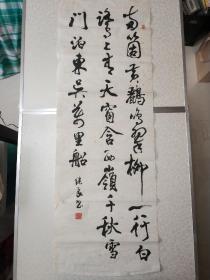 两箇黄鹂鸣翠柳一行白
鹭上青天窗含西岭千秋雪
门泊東吴萬里船